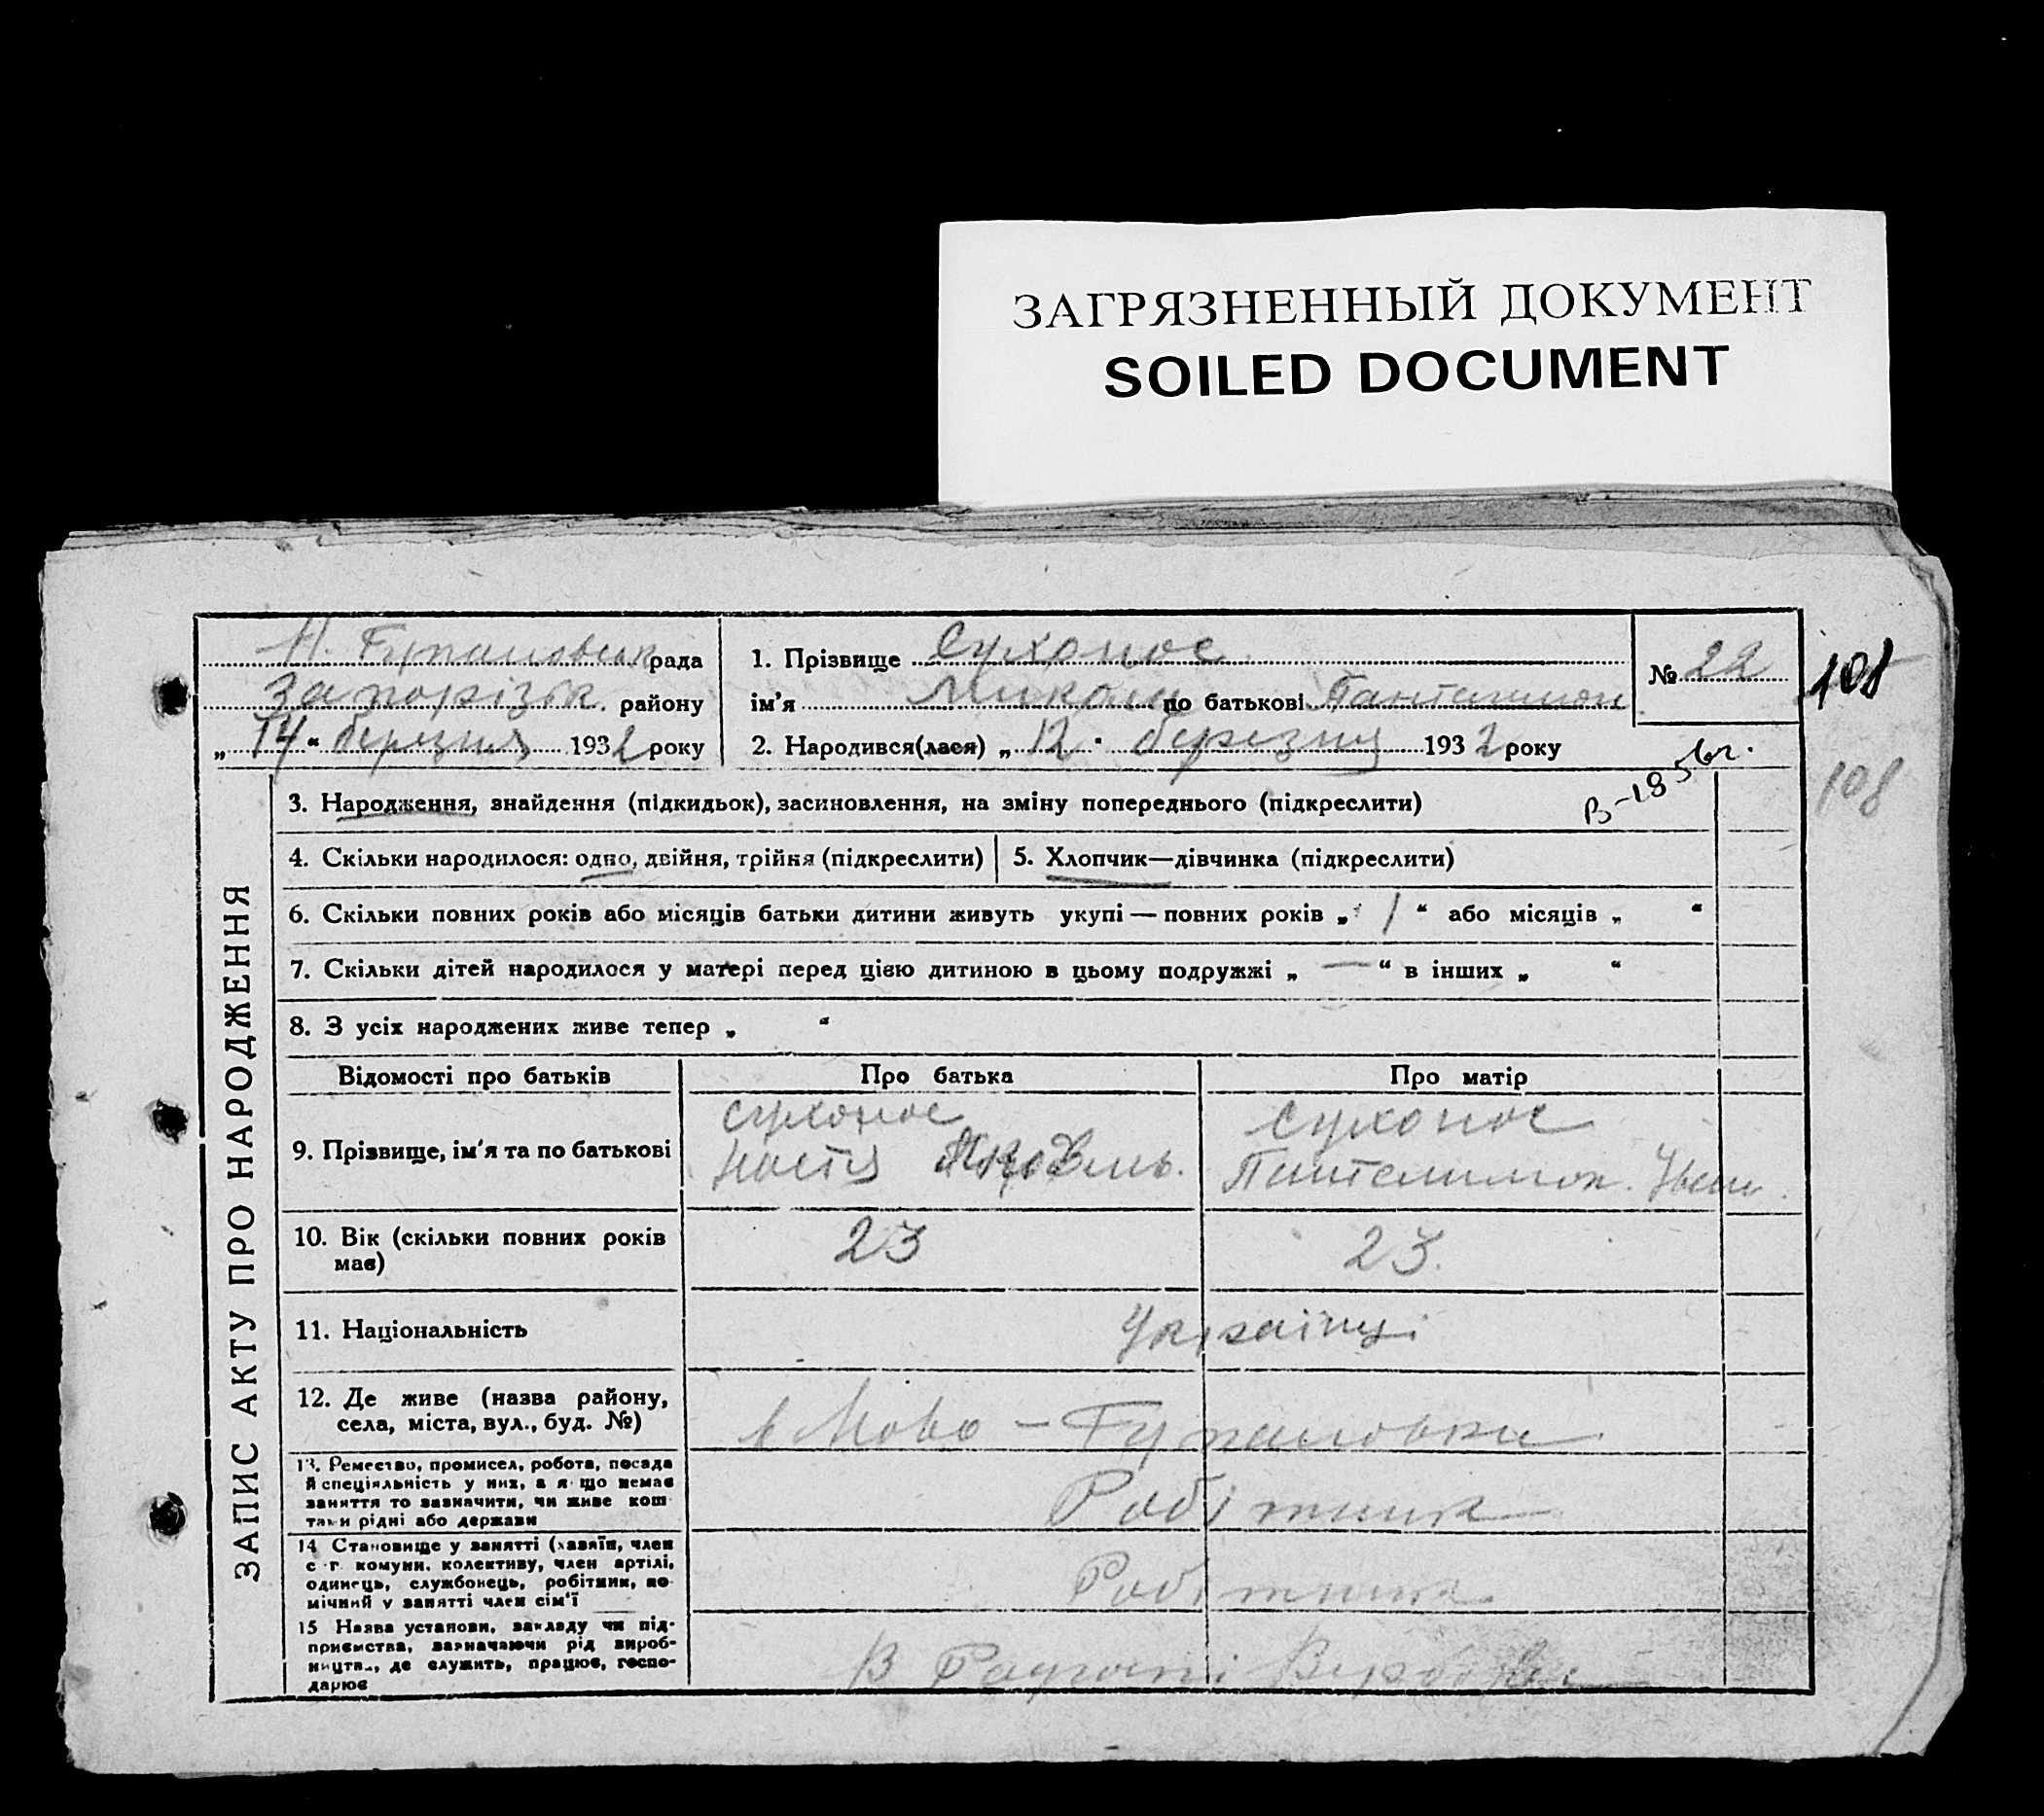 ЗАГРЯЗНЕННЫЙ ДОКУМЕНТ
SOILED DOCUMENT
Н. рада
Запорізьк. району
„ 14 “ березня 1932 року
1. Прізвище Сухонос
ім’я Микола по батькові Пантелимон
2. Народився(лася) „ 12 “ березня 1932 року
№ 22
108
108
В-18 56г.
ЗАПИС АКТУ ПРО НАРОДЖЕННЯ
3. Народження, знайдення (підкидьок), засиновлення, на зміну попереднього (підкреслити)
4. Скільки народилося: одно, двійня, трійня (підкреслити)
5. Хлопчик—дівчинка (підкреслити)
6. Скільки повних років або місяців батьки дитини живуть укупі — повних років „ 1 “ або місяців „ “
7. Скільки дітей народилося у матері перед цією дитиною в цьому подружжі „ — “ в інших „ “
8. З усіх народжених живе тепер „ “
Відомості про батьків
Про батька
Про матір
9. Прізвище, ім’я та по батькові
Сухонос
Настя
Сухонос
Пантелимон. Іван.
10. Вік (скільки повних років
має)
23
23.
11. Національність
Українці
12. Де живе (назва району,
села, міста, вул., буд. №)
в Ново –
13. Ремество, промисел, робота, посада
й спеціяльність у них, а якщо немає
заняття то зазначити, чи живе кош-
тами рідні або держави
Робітник
14 Становище у занятті (хазяїн, член
с.-г. комуни, колективу, член артілі,
одинець, службонець, робітник, по-
мічний у занятті член сім’ї
Робітник
15 Назва установи, закладу чи під-
приємства, зазначаючи рід вироб-
ництва, де служить, працює, госпо-
дарює
В Радгоспі